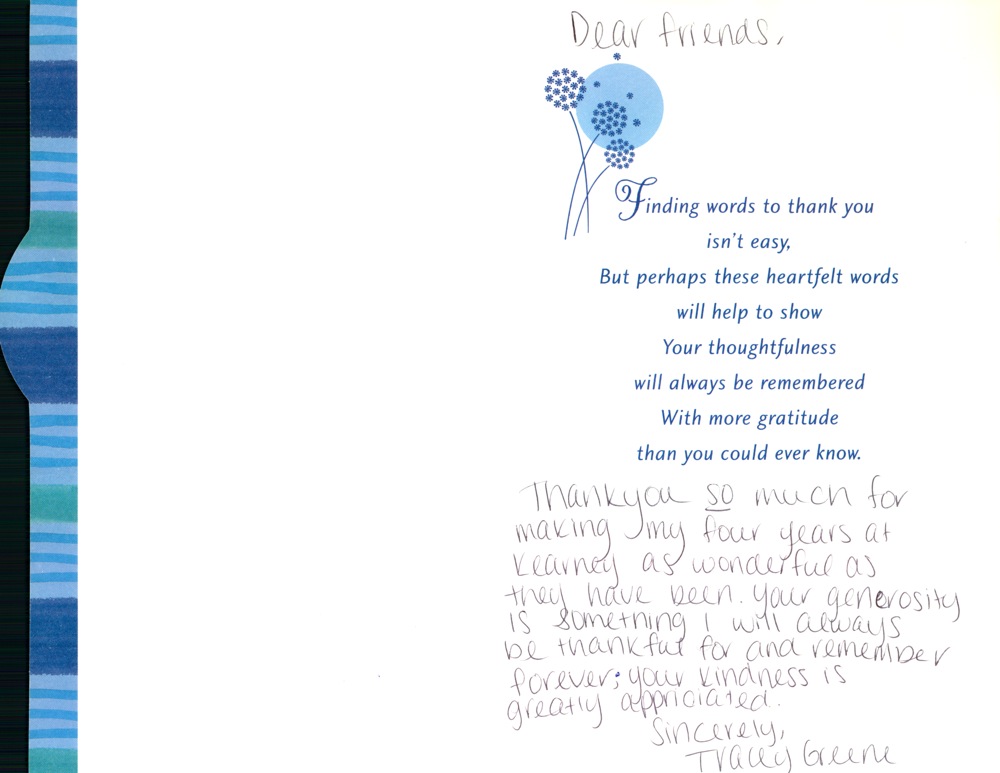 Dear friends,
Finding words to thank you
isn't easy,
But perhaps these heartfelt words
will help to show
Your thoughtfulness
will always be remembered
With more gratitude
than you could ever know.
Thankyou so much for
making my four years at
Kearney as wonderful as
they have been. Your generosity
is something I will always
be thankful for and remember
forever; your kindness is
greatly appriciated.
Sincerely,
Tracey Greene